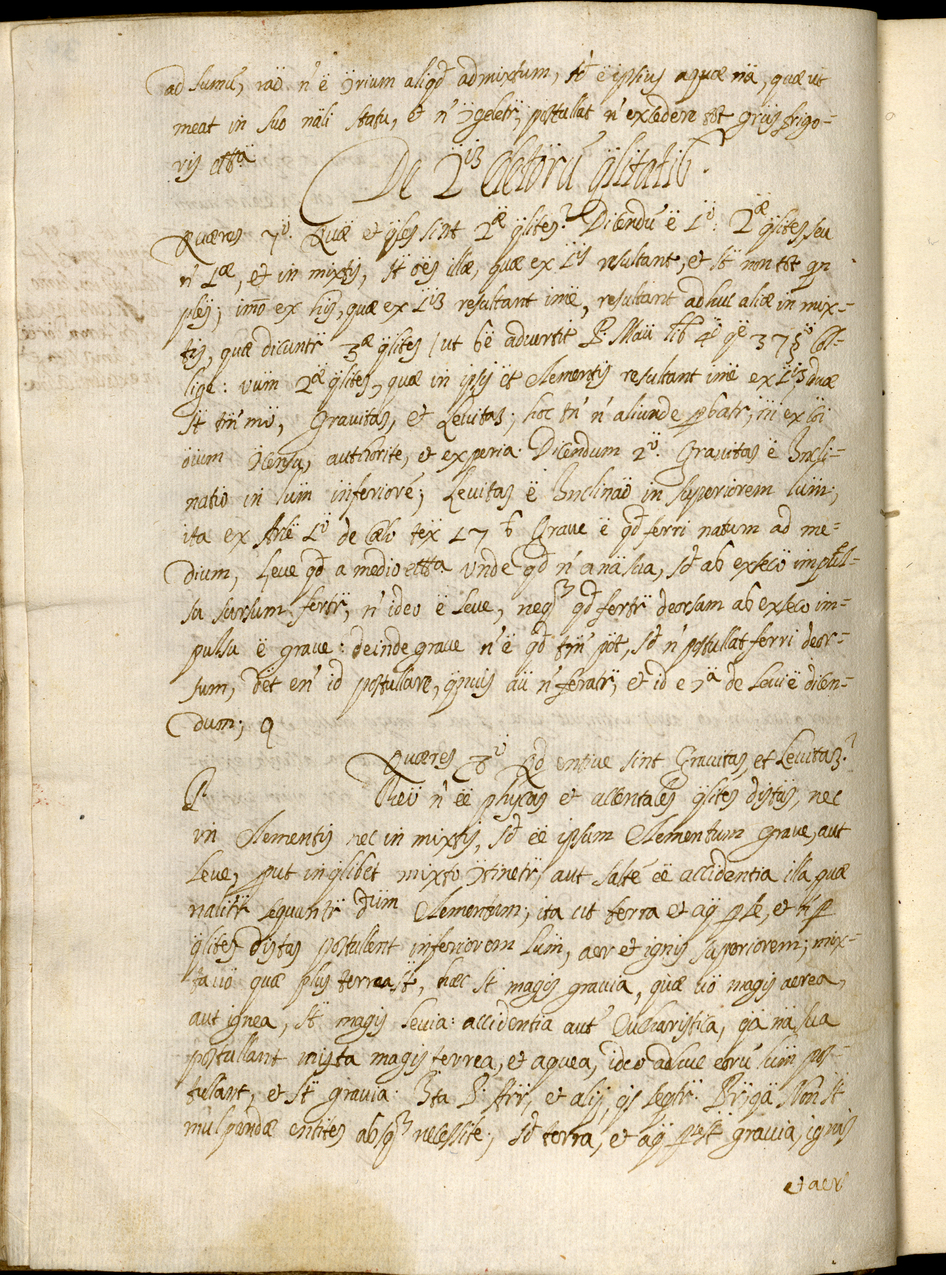 ad sumū, raō n' ē ɔ̄rium aliqđ admixtum, sđ ē ipsius aquæ nā, quæ ut
meat in suo nāli statu, et n' ɔ̄geletr̄, postullat n' excedere tot grūs frigo-
ris ettā
De 2ī3 Cætorū q̄litatib
Quæres 7ō. Quæ et q̄les sint 2æ q̄lites? Dicendū ē 1ō: 2æ q̄lites seu
n' 1æ, et in mixtis, st̄ oēs illæ, quæ ex 1īs resultant, et st̄ non tot
imō ex his, quæ ex 1ī3 resultant imē, resultant adhuc aliæ in mix-
tis, quæ dicuntr̄ 3æ q̄lites (ut bē advertit P. Mau lib 4
lige: 2æ q̄lites, quæ in ipsis et Elementis resultant imē ex 1ī3 duæ
st̄ tn̄ mō, Gravitas, et Levitas; hoc tn' n' aliunde probatr̄, ex
oium authorite, et experia. Dicendum 2ō. Gravitas ē Incli-
natio in lum̄ inferiorē; Levitas ē Inclinaō in superiorem lum̄;
ita ex 1ō de cælo tex 17 Grave ē qđ ferri natum ad me-
dium, Leve qđ a medio etta Unde qđ n' a nā sua, sđ ab exseco impul-
su sursum fertr̄, n' ideo ē leve, neq3 qđ fertr̄ deorsum ab exseco im-
pulsu ē grave: deinde grave n' ē qđ tn̄ pōt, sđ n' postullat ferri deor-
sum, dēt en' id postullare, q̄nvis aū n' feratr̄, et id e ɔa de Levi ē dicen-
dum; q
Quæres 8ō Qđ entive sint Gravitas, et Levitas?
R. Reō n' ēē phycas et accentales q̄lites distas, nec
in Elementis nec in mixtis, sđ ēē ipsum Elementum grave, aut
Leve, put in q̄libet mixto ɔ̄tinetr̄, aut saltē ēē accidentia illa quæ
nalitr̄ sequuntr̄ dum Elementum; ita ut terra et aq̄ p se, et n' p
q̄lites distas postullent inferiorem lum̄, aer et ignis superiorem; mix-
ta vō quæ plus terrea st̄, hæc st̄ magis gravia, quæ vō magis aerea,
aut ignea, st̄ magis levia: accidentia aut' Eucharistica, qa nā sua
postullant mixta magis terrea, et aquea, ideo adhuc eorū lum̄ pos-
tulant, et st̄ gravia. Ita P. Arr, et alij, qs seqtr̄. Non st̄
mulpandæ entites absq3 necessite; sđ terra, et aq̄ p se st̄ gravia, ignis
et aer